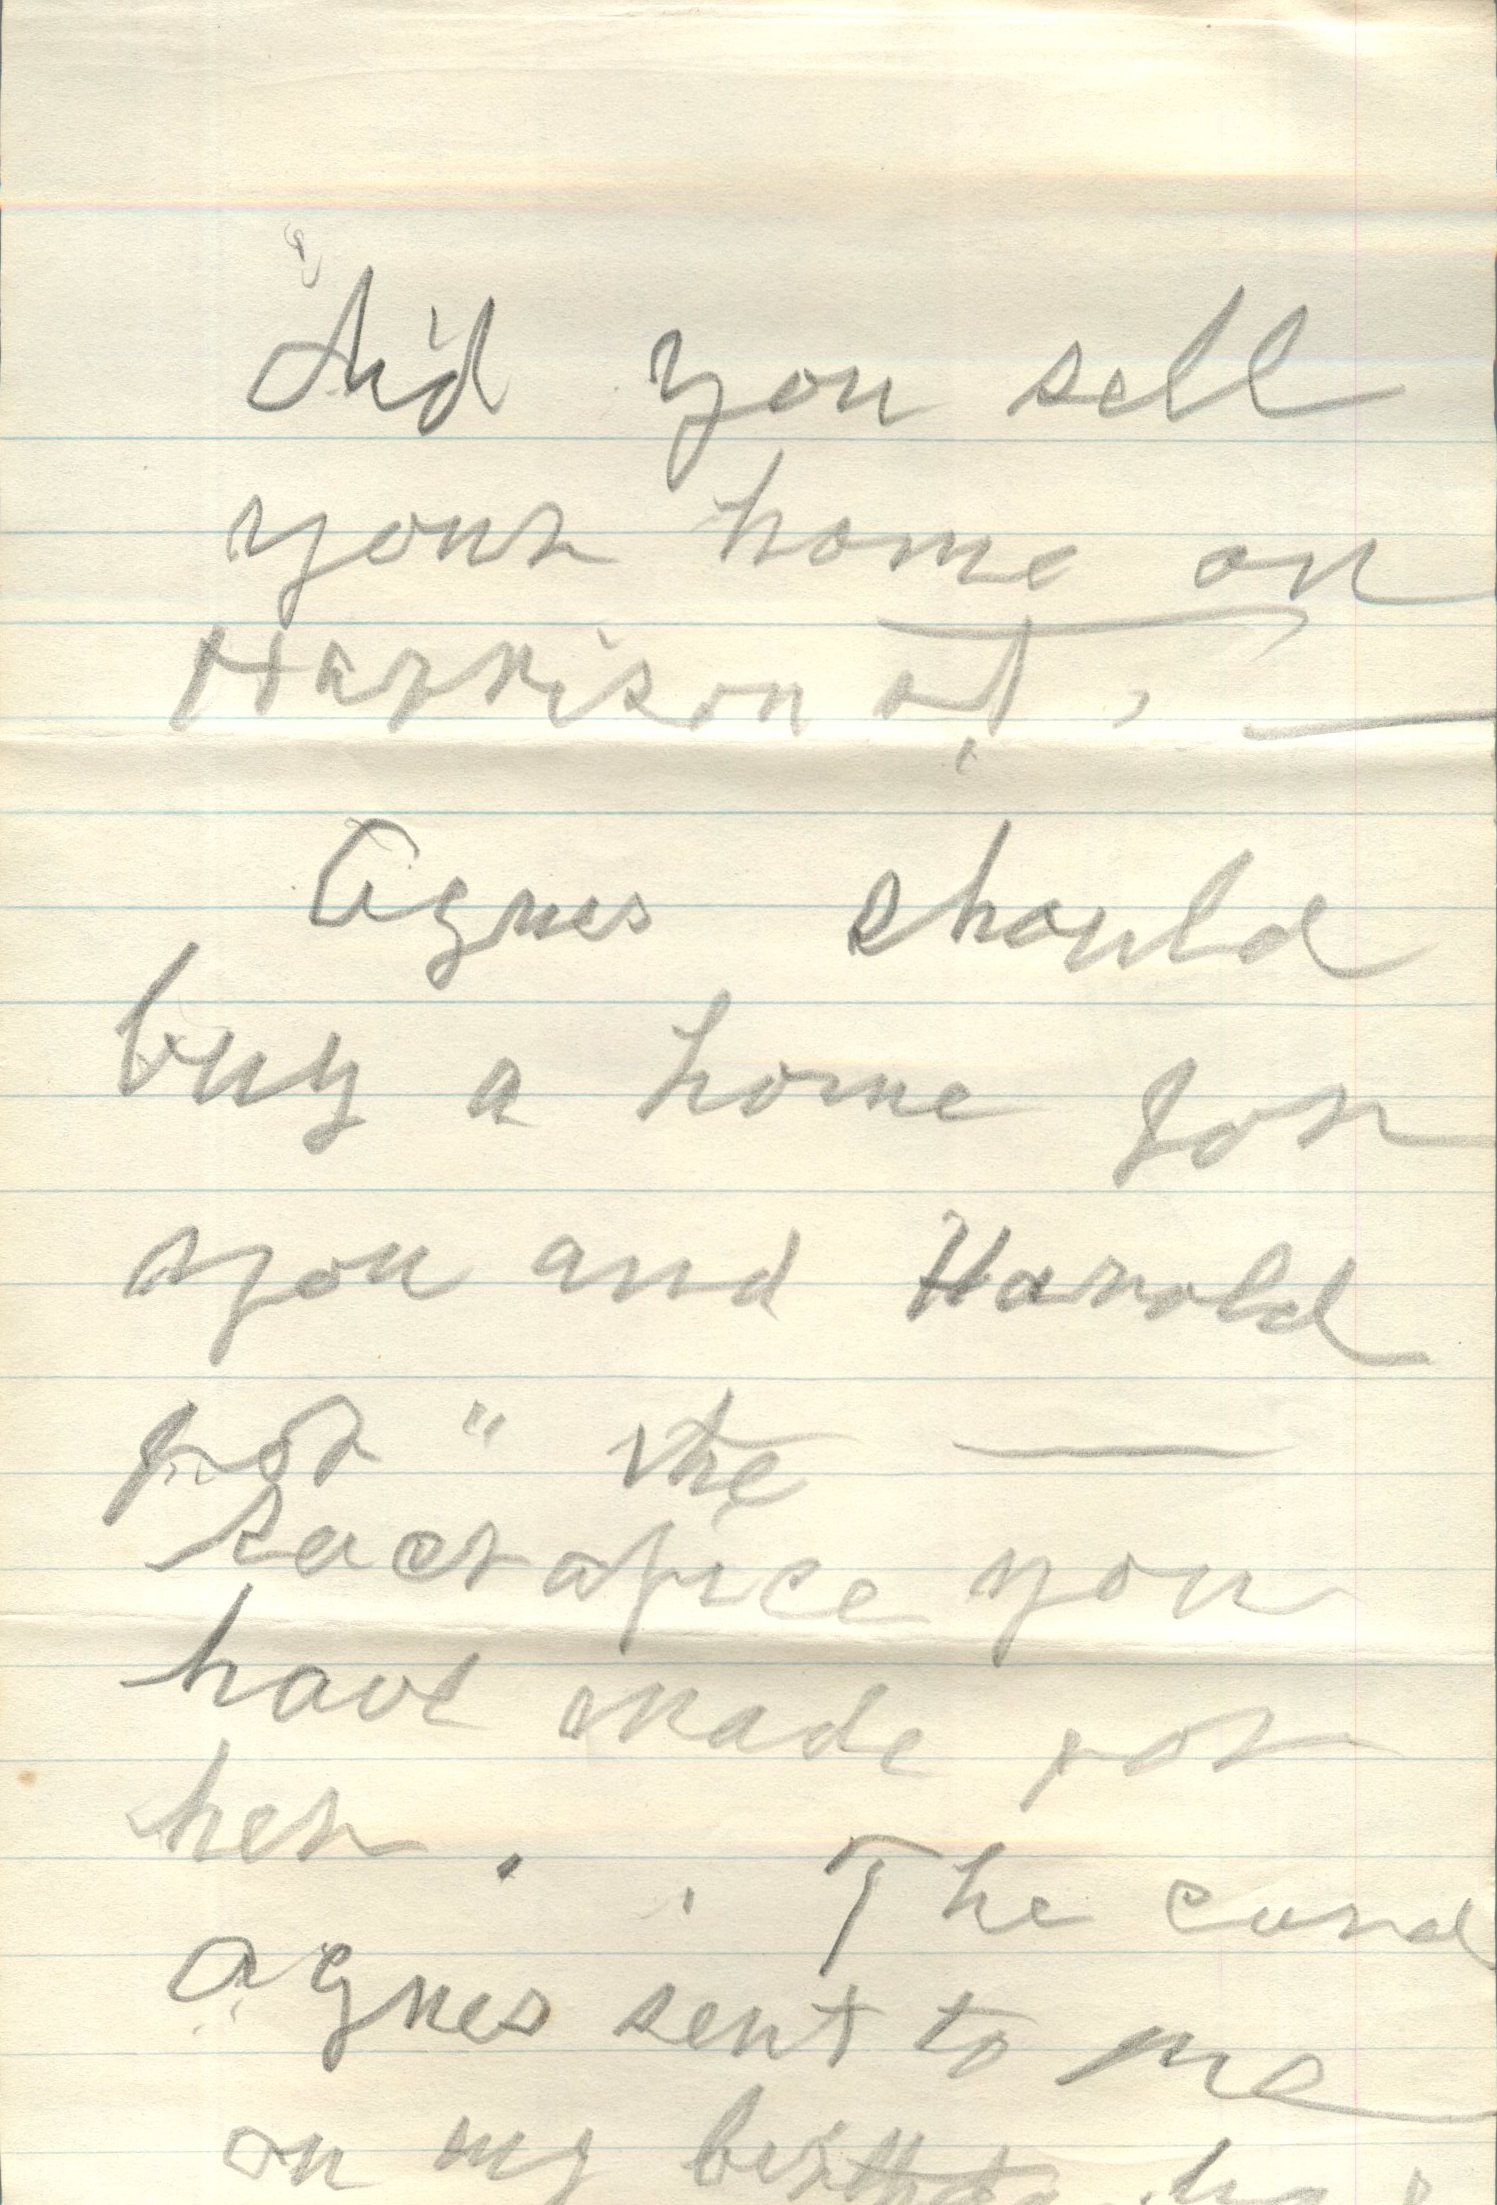 Did you sell
your home on
Harrison st,
Agnes should
buy a home for
you and Harold
for " the —
sacrafice you
have made for
her. The card
Agnes sent to me
on my birthday